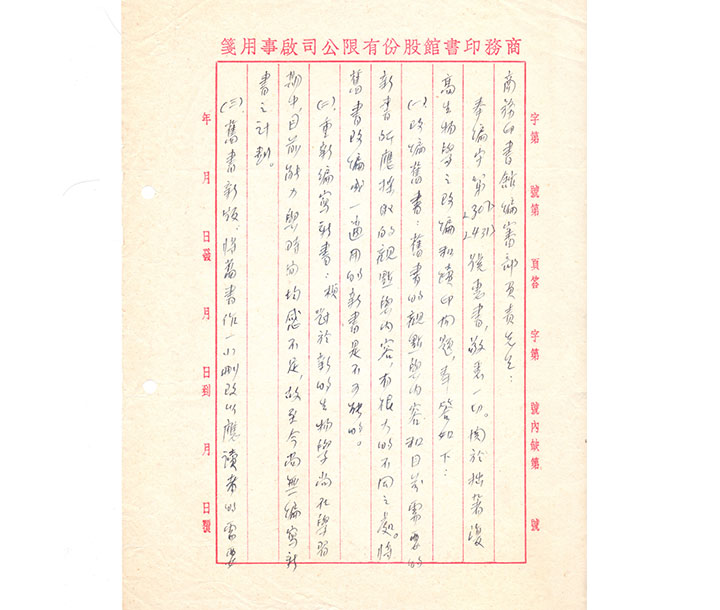 商務印書館股份有限公司啟事用箋
字第 號第 頁答 字第 號內缺第 號
商務印書館編審部負責先生：
奉編字第2307 2431號惠書，敬悉一切。関於拙著復
高生物學之改編和續印問題，奉答如下：
(一)、改編舊書：舊書的觀點與內容和目前需要的
新書所應採取的觀點與內容，有很大的不同之處。將
舊書改編成一適用的新書是不可能的。
(二)、重新編寫新書：對於新的生物學尚在學習
期中，目前能力與時間均感不足，故至今尚無編寫新
書之計劃。
(三)、舊書新版，將舊書作一小刪改以應讀者的需要
年 月 日發 月 日到 月 日覆